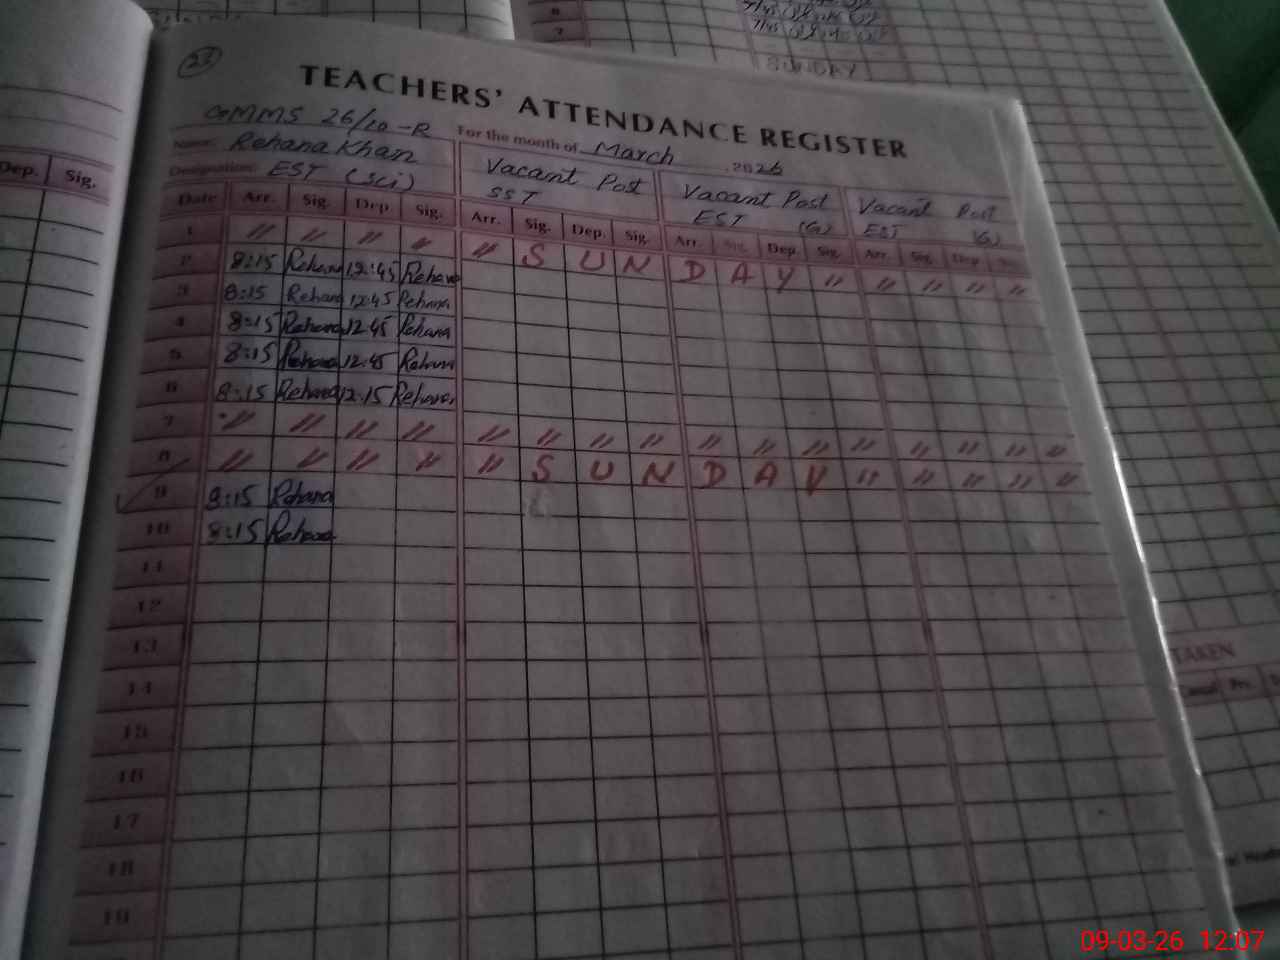 6
7
SUNDAY
23
TEACHERS' ATTENDANCE REGISTER
COMMS 26/10-R
For the month of March 2026
Name: Rehana Khan
Designation: EST (Sci)
Vacant Post SST
Vacant Post EST (G)
Vacant Post EST (G)
Dep. Sig.
Date Arr. Sig. Dep Sig. Arr. Sig. Dep. Sig. Arr. Sig. Dep. Sig. Arr. Sig. Dep
1 " " " " " S U N D A Y " " " " "
2 8:15 Rehana 12:45 Rehana
3 8:15 Rehana 12:45 Rehana
4 8:15 Rehana 12:45 Rehana
5 8:15 Rehana 12:45 Rehana
6 8:15 Rehana 12:15 Rehana
7 " " " " " " " " " " " " " " " "
8 " " " " " S U N D A Y " " " " "
9 8:15 Rehana
10 8:15 Rehana
11
12
13
14
15
16
17
18
19
TAKEN
Casual Prv.
09-03-26 12:07